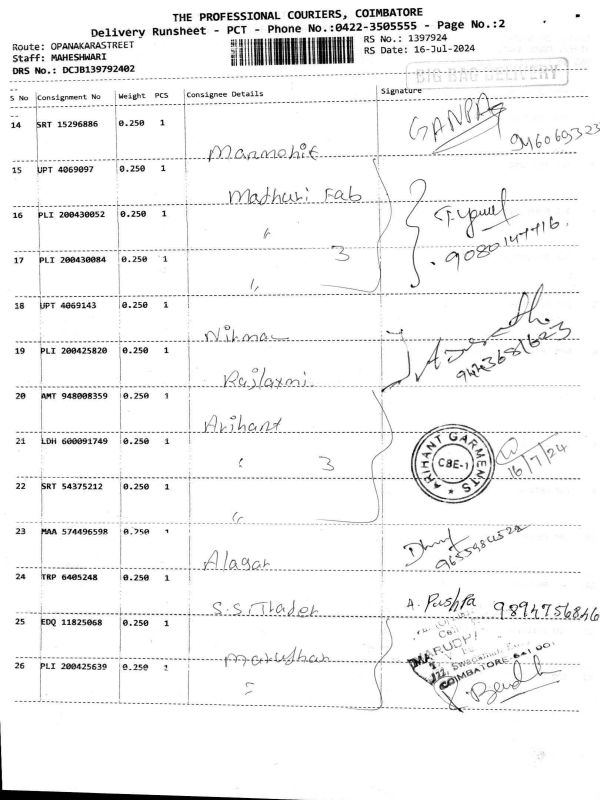 THE PROFESSIONAL COURIERS, COIMBATORE
Delivery Runsheet - PCT - Phone No.:0422-3505555 - Page No.:2
Route: OPANAKARASTREET
RS No.: 1397924
Staff: MAHESHWARI
RS Date: 16-Jul-2024
DRS No.: DCJB139792402
BIG BAG DELIVERY
S No Consignment No Weight PCS Consignee Details Signature
14 SRT 15296886 0.250 1
GANPA
Manmohit
15 UPT 4069097 0.250 1
Madhuri Fab
16 PLI 200430052 0.250 1
〃
9080147716.
17 PLI 200430084 0.250 1 3
〃
18 UPT 4069143 0.250 1
Nirmal
19 PLI 200425820 0.250 1
Rajlaxmi
20 AMT 948008359 0.250 1
Arihant
21 LDH 600091749 0.250 1
〃 3
ARIHANT GARMENTS
CBE-1
16/7/24
22 SRT 54375212 0.250 1
〃
23 MAA 574496598 0.250 1
Alagar
24 TRP 6405248 0.250 1
S.S. Trader
A. Pushpa 9894756846
25 EDQ 11825068 0.250 1
Marudhar
MARUDHA
26 PLI 200425639 0.250 1
〃
COIMBATORE-641 001